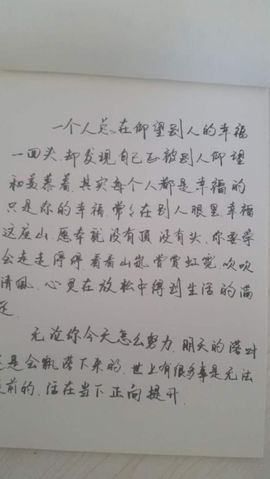 一个人总在仰望别人的幸福
一回头,却发现自己正被别人仰望
和羡慕着,其实每个人都是幸福的
只是你的幸福,常々在别人眼里幸福
这座山,原本就没有顶没有头,你要学
会走走停停看看山岚赏赏虹霓,吹吹
清风,心灵在放松中得到生活的满
足.
无论你今天怎么努力,明天的落叶
还是会飘落下来的,世上有很多事是无法
提前的,活在当下正向提升.